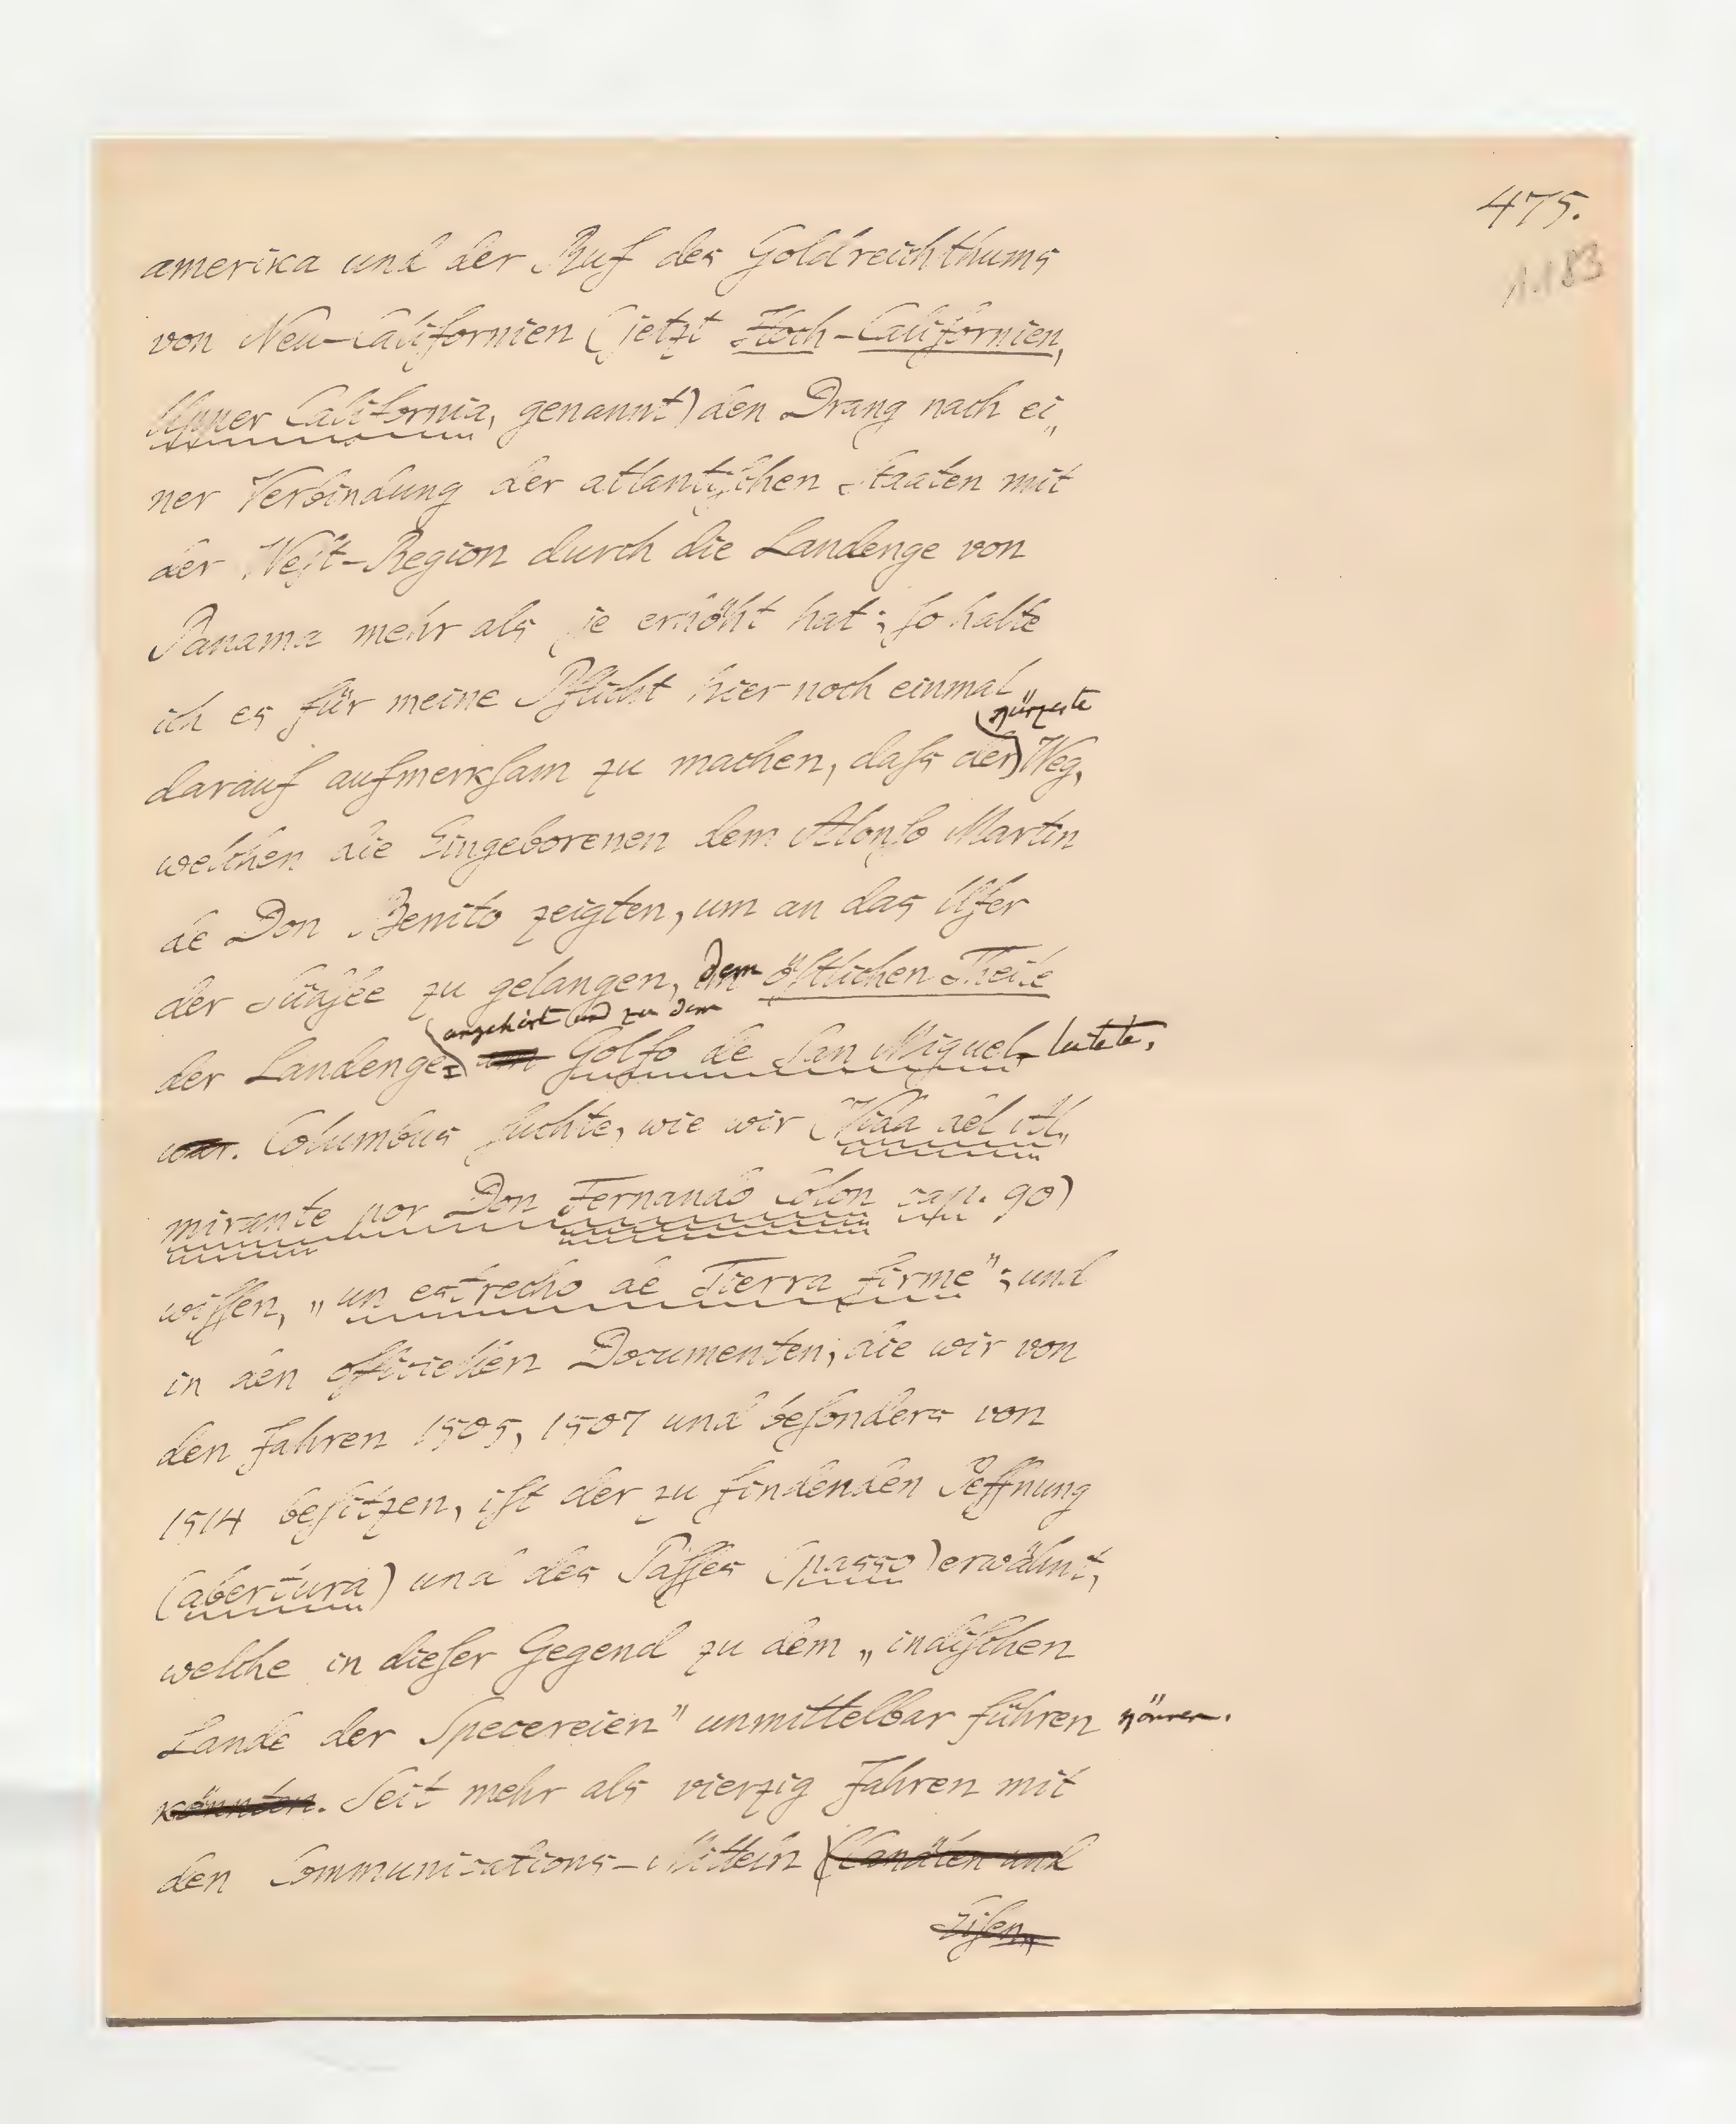 475.
1183
amerika und der Ruf des Goldreichthums
von Neu-Californien (jetzt Hoch-Californien,
Upper California, genannt) den Drang nach ei„
ner Verbindung der atlantiſchen Staaten mit
der Weſt-Region durch die Landenge von
Panama mehr als je erhöht hat; ſo halte
ich es für meine Pflicht hier noch einmal
kürzeste
darauf aufmerkſam zu machen, daſs der Weg,
welchen die Eingeborenen dem Alonſo Martin
de Don Benito zeigten, um an das Ufer
der Südſee zu gelangen, dem öſtlichen Theile
angehört und zu dem
der Landenge, am Golfo de San Miguel leitete.
war. Columbus ſuchte, wie wir (Vida del Al„
mirante por Don Fernando Colon cap. 90)
wiſſen, „un estrecho de Tierra firme“; und
in den officiellen Documenten, die wir von
den Jahren 1505, 1507 und beſonders von
1514 beſitzen, iſt der zu findenden Oeffnung
(abertura) und des Paſſes (passo) erwähnt,
welche in dieſer Gegend zu dem „indiſchen
Lande der Specereien“ unmittelbar führen können.
könnten. Seit mehr als vierzig Jahren mit
den Communications-Mitteln (Canälen und
Eiſen„